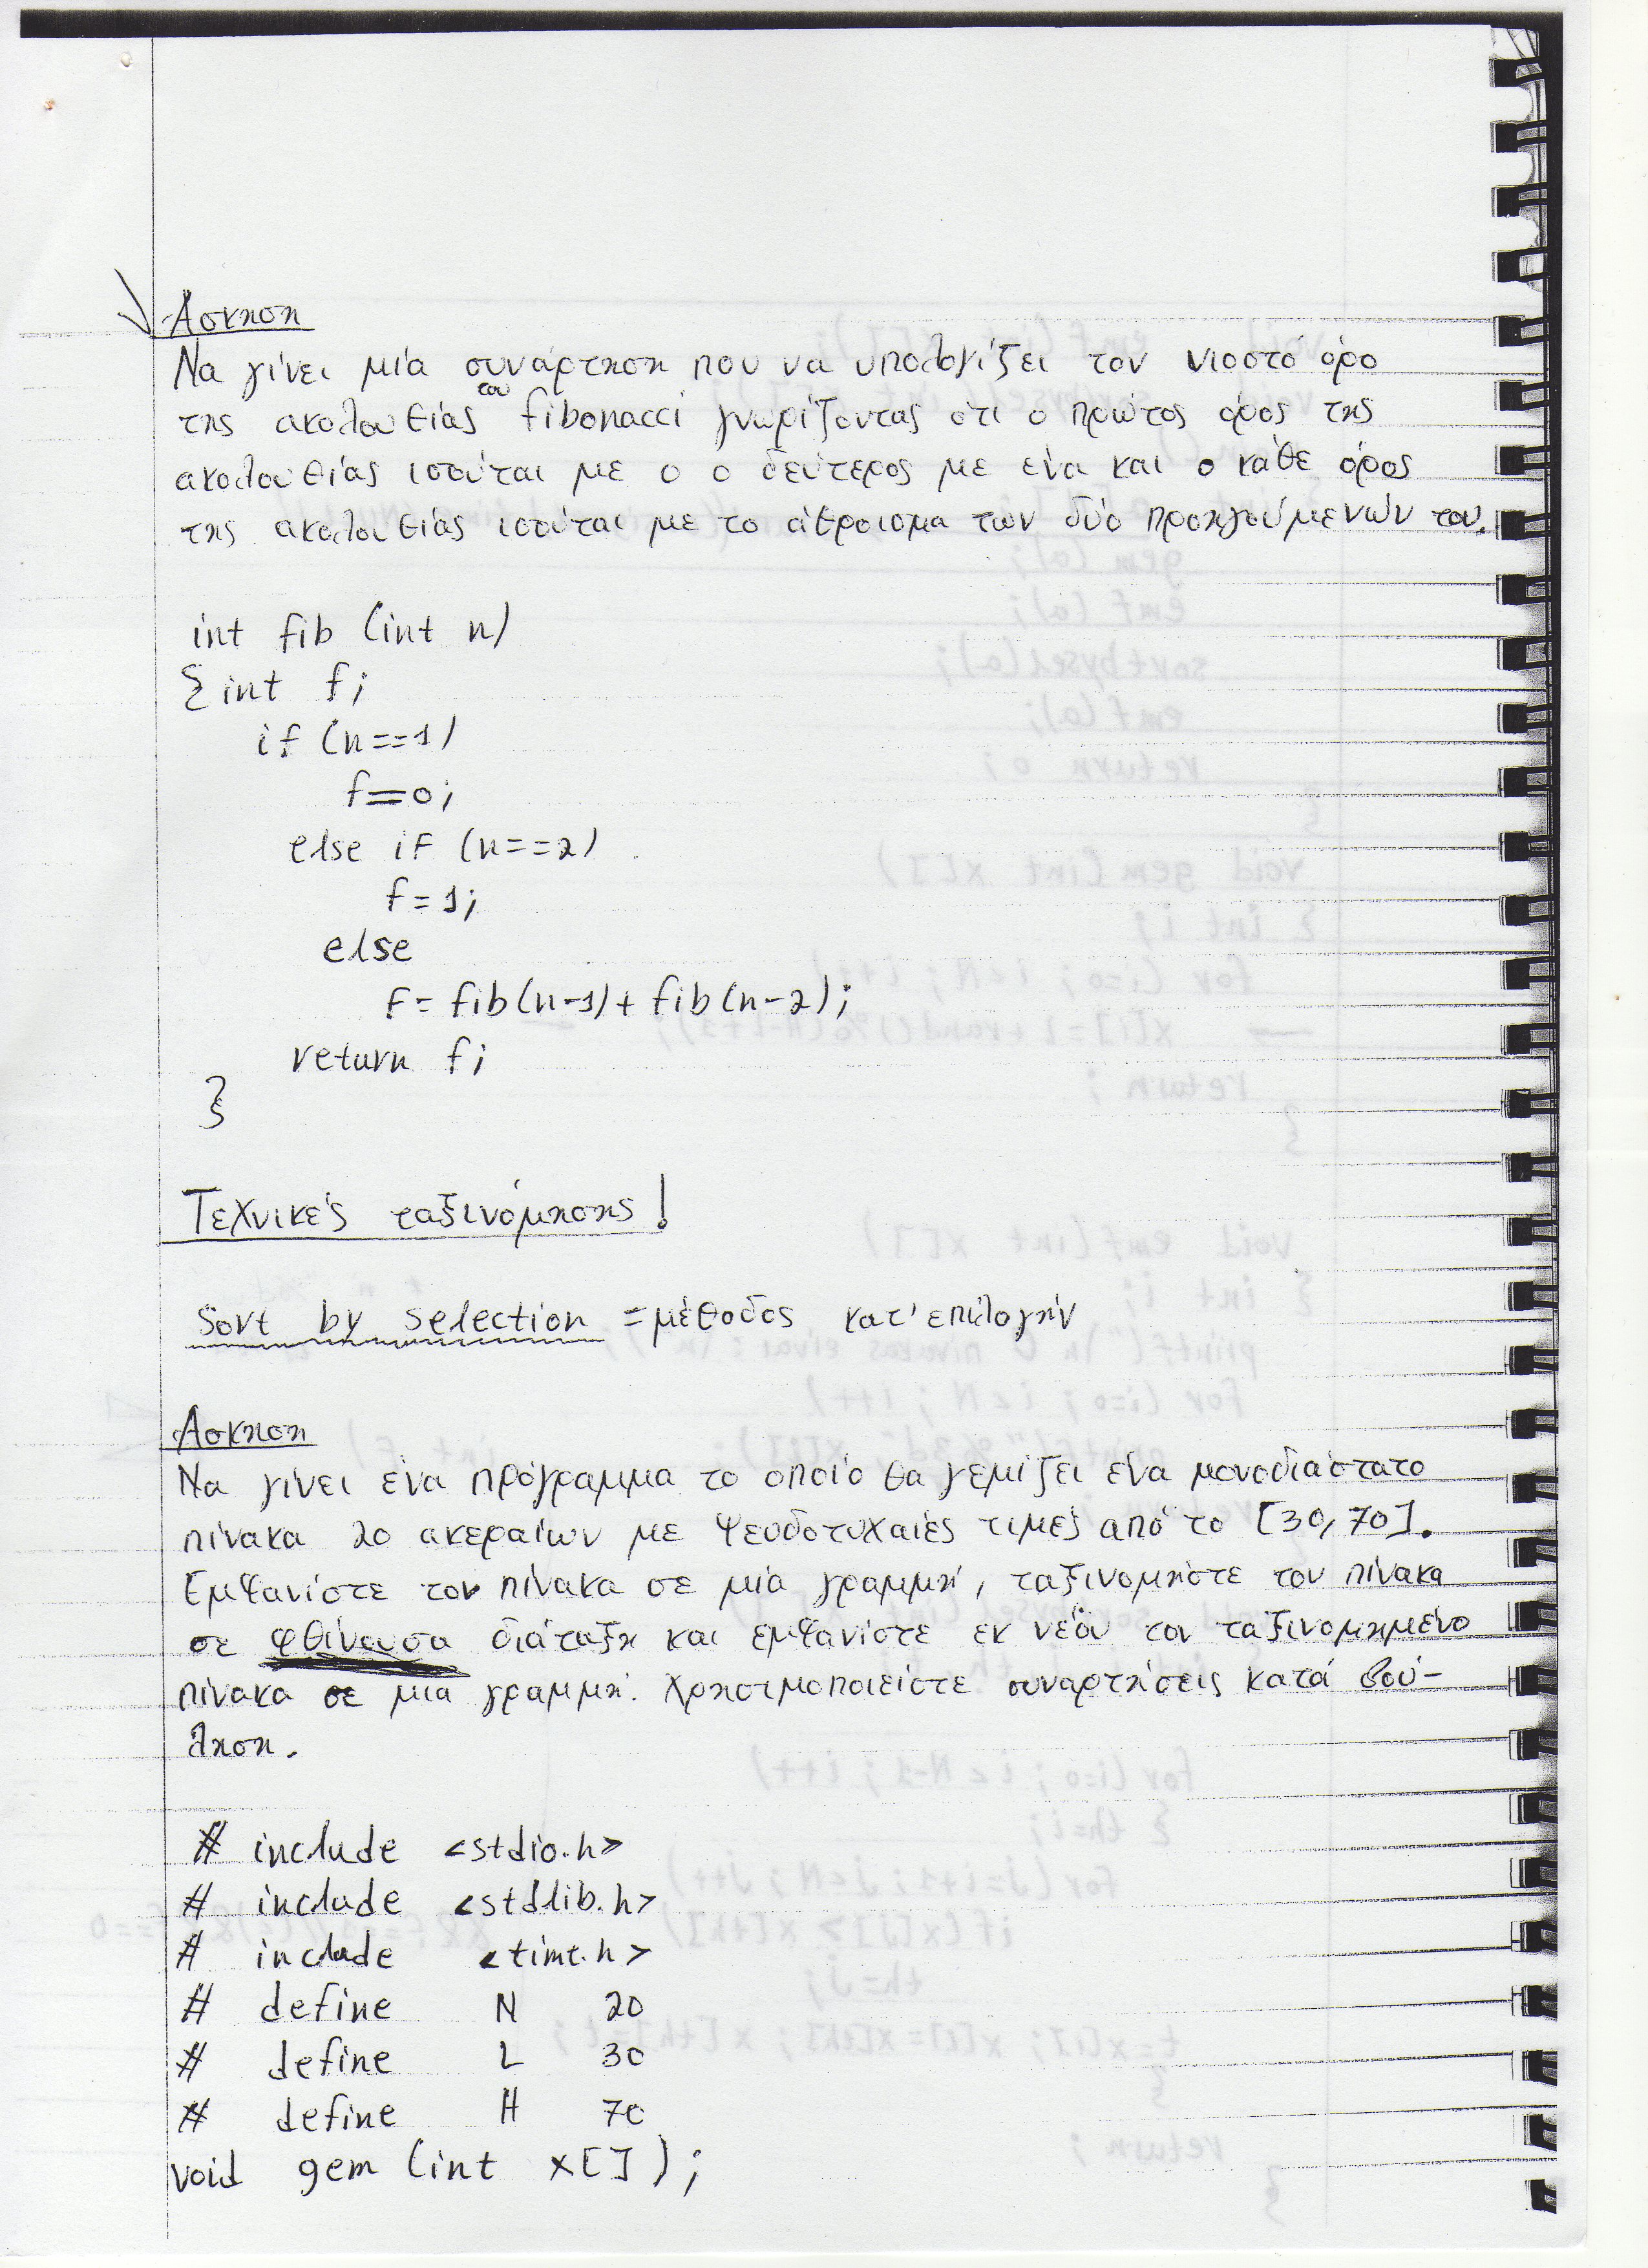 Άσκηση
Να γίνει μία συνάρτηση που να υπολογίζει τον νιοστό όρο
της ακολουθίας του fibonacci γνωρίζοντας ότι ο πρώτος όρος της
ακολουθίας ισούται με 0 ο δεύτερος με ένα και ο κάθε όρος
της ακολουθίας ισούται με το άθροισμα των δύο προηγούμενών του.
int fib (int n)
{ int f;
if (n==1)
f=0;
else if (n==2)
f=1;
else
f= fib(n-1)+ fib(n-2);
return f;
}
Τεχνικές ταξινόμησης!
Sort by selection = μέθοδος κατ' επιλογήν
Άσκηση
Να γίνει ένα πρόγραμμα το οποίο θα γεμίζει ένα μονοδιάστατο
πίνακα 20 ακεραίων με ψευδοτυχαίες τιμές από το [30,70].
Εμφανίστε τον πίνακα σε μία γραμμή, ταξινομήστε τον πίνακα
σε φθίνουσα διάταξη και εμφανίστε εκ νέου τον ταξινομημένο
πίνακα σε μια γραμμή. Χρησιμοποιείστε συναρτήσεις κατά βού-
ληση.
# include <stdio.h>
# include <stdlib.h>
# include <time.h>
# define N 20
# define L 30
# define H 70
void gem (int x[]);